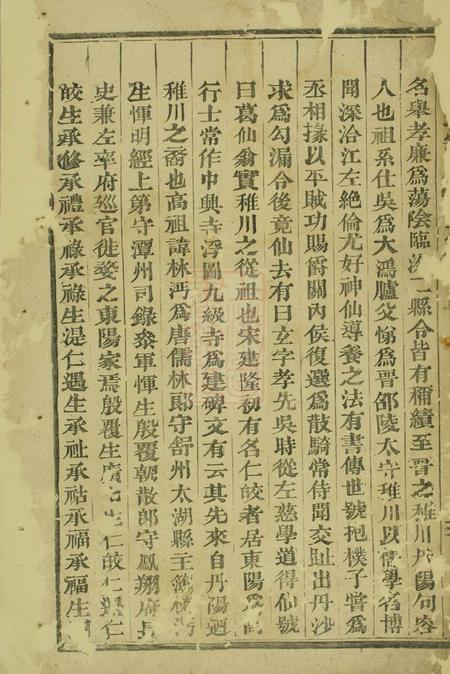 名舉孝廉爲蕩陰臨二縣令皆有禰績至晉之稚川丹陽句容
人也祖系仕吳爲大鴻臚父悌爲晉邵陵太守稚川以儒學名博
聞深洽江左絶倫尤好神仙導養之法有書傳世號抱樸子嘗爲
丞相掾以平賊功賜爵關內侯復選爲散騎常侍聞交趾出丹沙
求爲勾漏令後竟仙去有曰玄字孝先吳時從左慈學道得仙號
曰葛仙翁實稚川之從祖也宋建隆初有名仁皎者居東陽爲
行士常作中興寺浮圖九級寺爲建碑文有云其先來自丹陽迺
稚川之裔也高祖諱林沔爲唐儒林郎守舒州太湖縣王
生惲明經上第守潭州司錄叅軍惲生殷覆朝散郎守鳳翔府長
史兼左率府廵官徙婺之東陽家焉殷覆生生仁皎仁遇仁
皎生承修承禮承祿承祿生湜仁遇生承祉承祜承福承福生